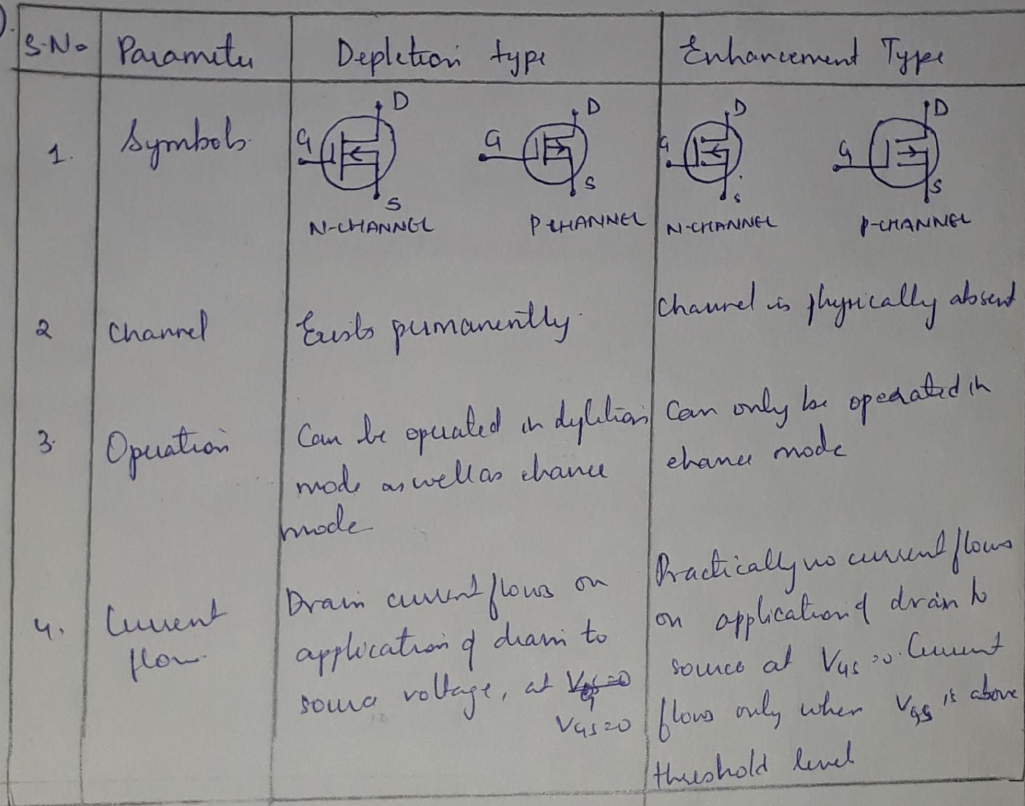 S.No Parameter Depletion type Enhancement Type
1. Symbols.
G D S N-CHANNEL
G D S P-CHANNEL
G D S N-CHANNEL
G D S P-CHANNEL
2 Channel
Exists permanently.
Channel is physically absent
3. Operation
Can be operated in depletion
mode as well as ehance
mode
Can only be operated in
ehance mode
4. Current
flow.
Drain current flows on
application of drain to
source voltage, at
VGS=0
Practically no current flows
on application of drain to
source at VGS=0. Current
flows only when VGS is above
threshold level